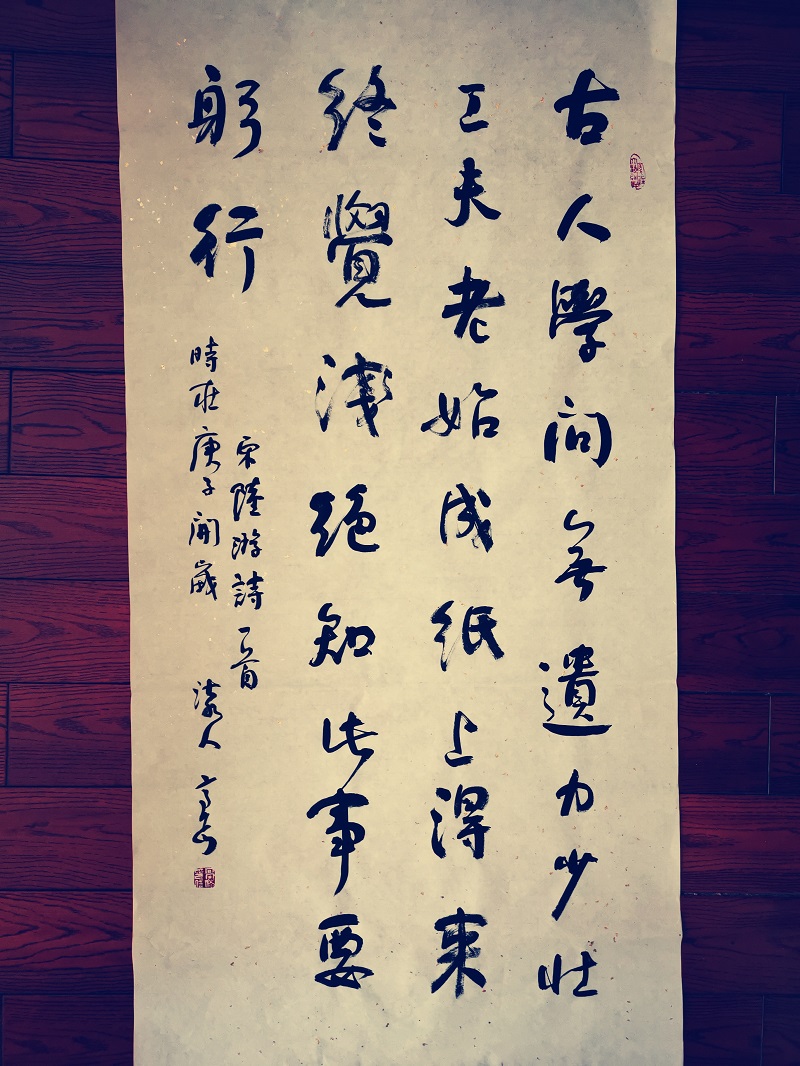 古人學问無遺力少壯
工夫老始成纸上得来
终覺浅绝知此事要
躬行
宋陸游詩一首
時在庚子開歲
人